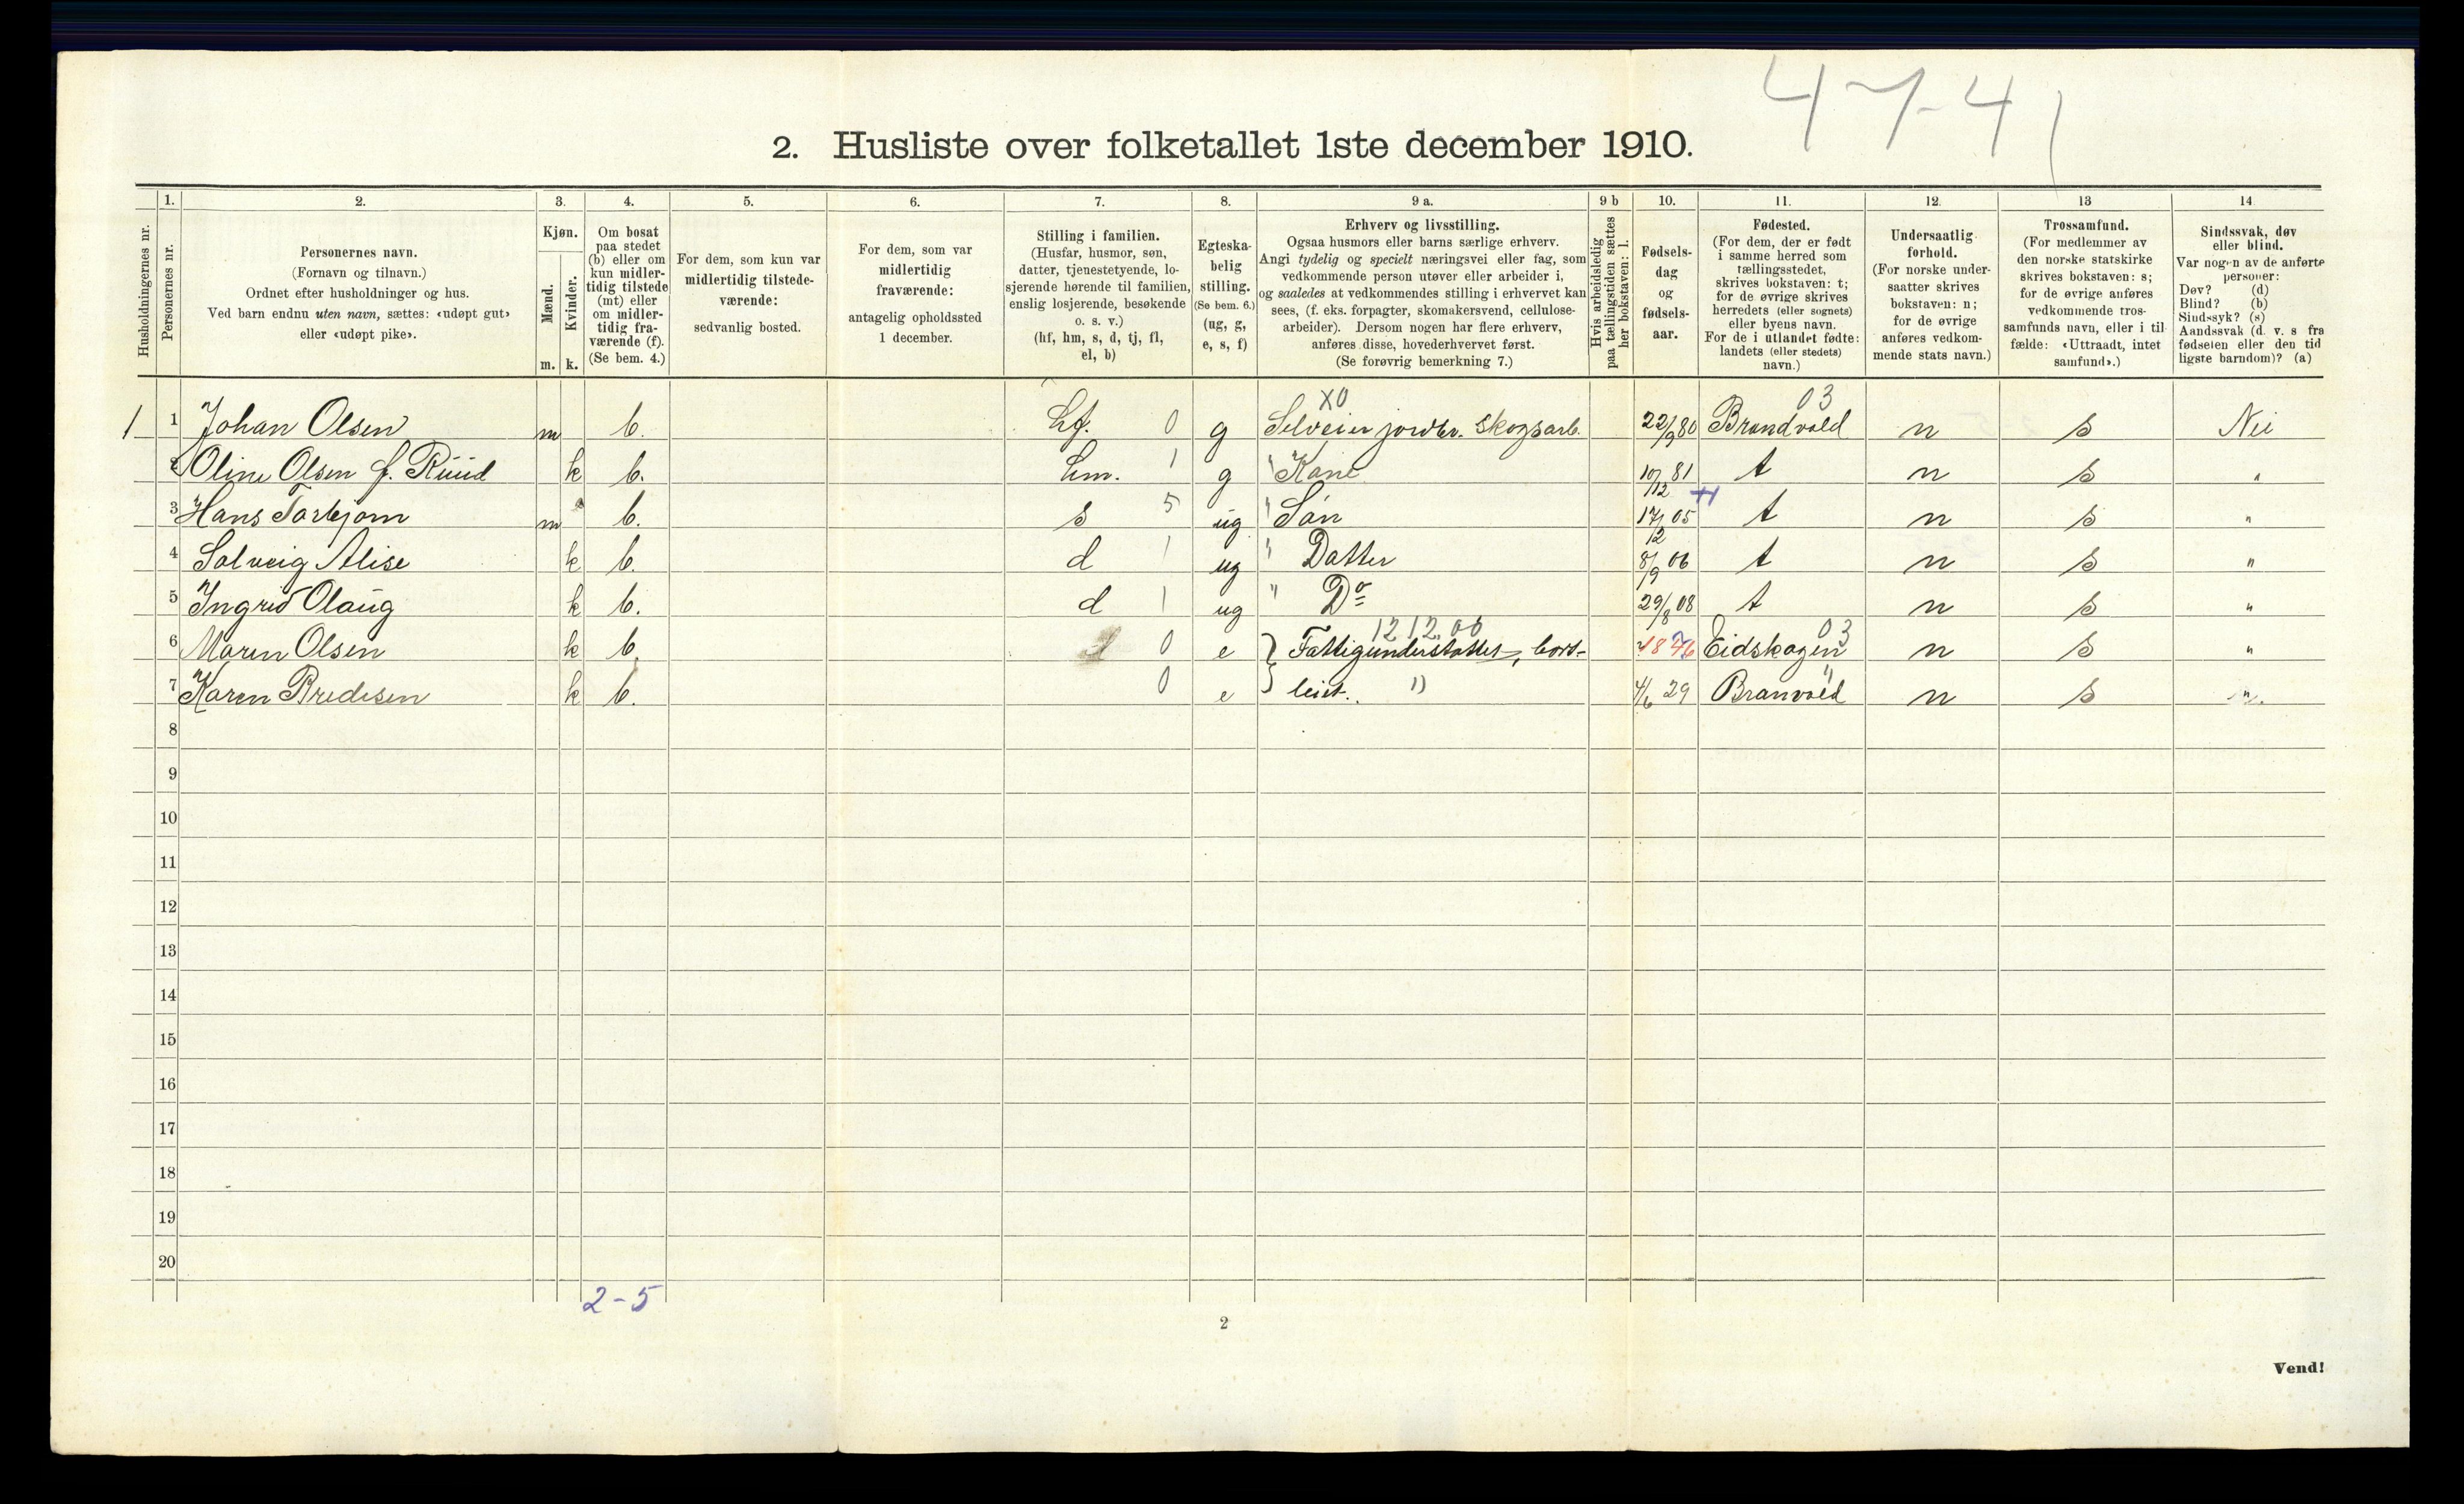 4-7-41
2. Husliste over folketallet 1ste december 1910.
1. 2. 3. 4. 5. 6. 7. 8. 9 a. 9 b 10. 11. 12. 13 14
Husholdningernes nr.
Personernes nr.
Personernes navn.
(Fornavn og tilnavn.)
Ordnet efter husholdninger og hus.
Ved barn endnu uten navn, sættes: «udøpt gut»
eller «udøpt pike».
Kjøn.
Mænd.
Kvinder.
m. k.
Om bosat
paa stedet
(b) eller om
kun midler-
tidig tilstede
(mt) eller
om midler-
tidig fra-
værende (f).
(Se bem. 4.)
For dem, som kun var
midlertidig tilstede-
værende:
sedvanlig bosted.
For dem, som var
midlertidig
fraværende:
antagelig opholdssted
1 december.
Stilling i familien.
(Husfar, husmor, søn,
datter, tjenestetyende, lo-
sjerende hørende til familien,
enslig losjerende, besøkende
o. s. v.)
(hf, hm, s, d, tj, fl,
el, b)
Egteska-
belig
stilling.
(Se bem. 6.)
(ug, g,
e, s, f)
Erhverv og livsstilling.
Ogsaa husmors eller barns særlige erhverv.
Angi tydelig og specielt næringsvei eller fag, som
vedkommende person utøver eller arbeider i,
og saaledes at vedkommendes stilling i erhvervet kan
sees, (f. eks. forpagter, skomakersvend, cellulose-
arbeider). Dersom nogen har flere erhverv,
anføres disse, hovederhvervet først.
(Se forøvrig bemerkning 7.)
Hvis arbeidsledig
paa tællingstiden sættes
her bokstaven: l.
Fødsels-
dag
og
fødsels-
aar.
Fødested.
(For dem, der er født
i samme herred som
tællingsstedet,
skrives bokstaven: t;
for de øvrige skrives
herredets (eller sognets)
eller byens navn.
For de i utlandet fødte:
landets (eller stedets)
navn.)
Undersaatlig
forhold.
(For norske under-
saatter skrives
bokstaven: n;
for de øvrige
anføres vedkom-
mende stats navn.)
Trossamfund.
(For medlemmer av
den norske statskirke
skrives bokstaven: s;
for de øvrige anføres
vedkommende tros-
samfunds navn, eller i til
fælde: «Uttraadt, intet
samfund».)
Sindssvak, døv
eller blind.
Var nogen av de anførte
personer:
Døv? (d)
Blind? (b)
Sindssyk? (s)
Aandssvak (d. v. s fra
fødselen eller den tid
ligste barndom)? (a)
X0 03
1 1 Johan Olsen m b. hf. 0 g Selveier jordbr. skogsarb. 22/9 80 Brandvold n s Nei
2 Oline Olsen f. Ruud k b. hm. 1 g " Kone 10/12 81 t n s "
3 Hans Torbjørn m b. s 5 ug " Søn 17/12 05 t n s "
4 Solveig Alise k b. d 1 ug " Datter 8/9 06 t n s "
5 Ingrid Olaug k b. d 1 ug " Do 29/8 08 t n s "
12 12.00 03
6 Maren Olsen k b. 0 e } Fattigunderstøttet, bort- Eidskogen n s "
7 Karen Bredesen k b. 0 e leiet. 1) 4/6 29 Branvold n s "
8
9
10
11
12
13
14
15
16
17
18
19
20
2-5
2
Vend!